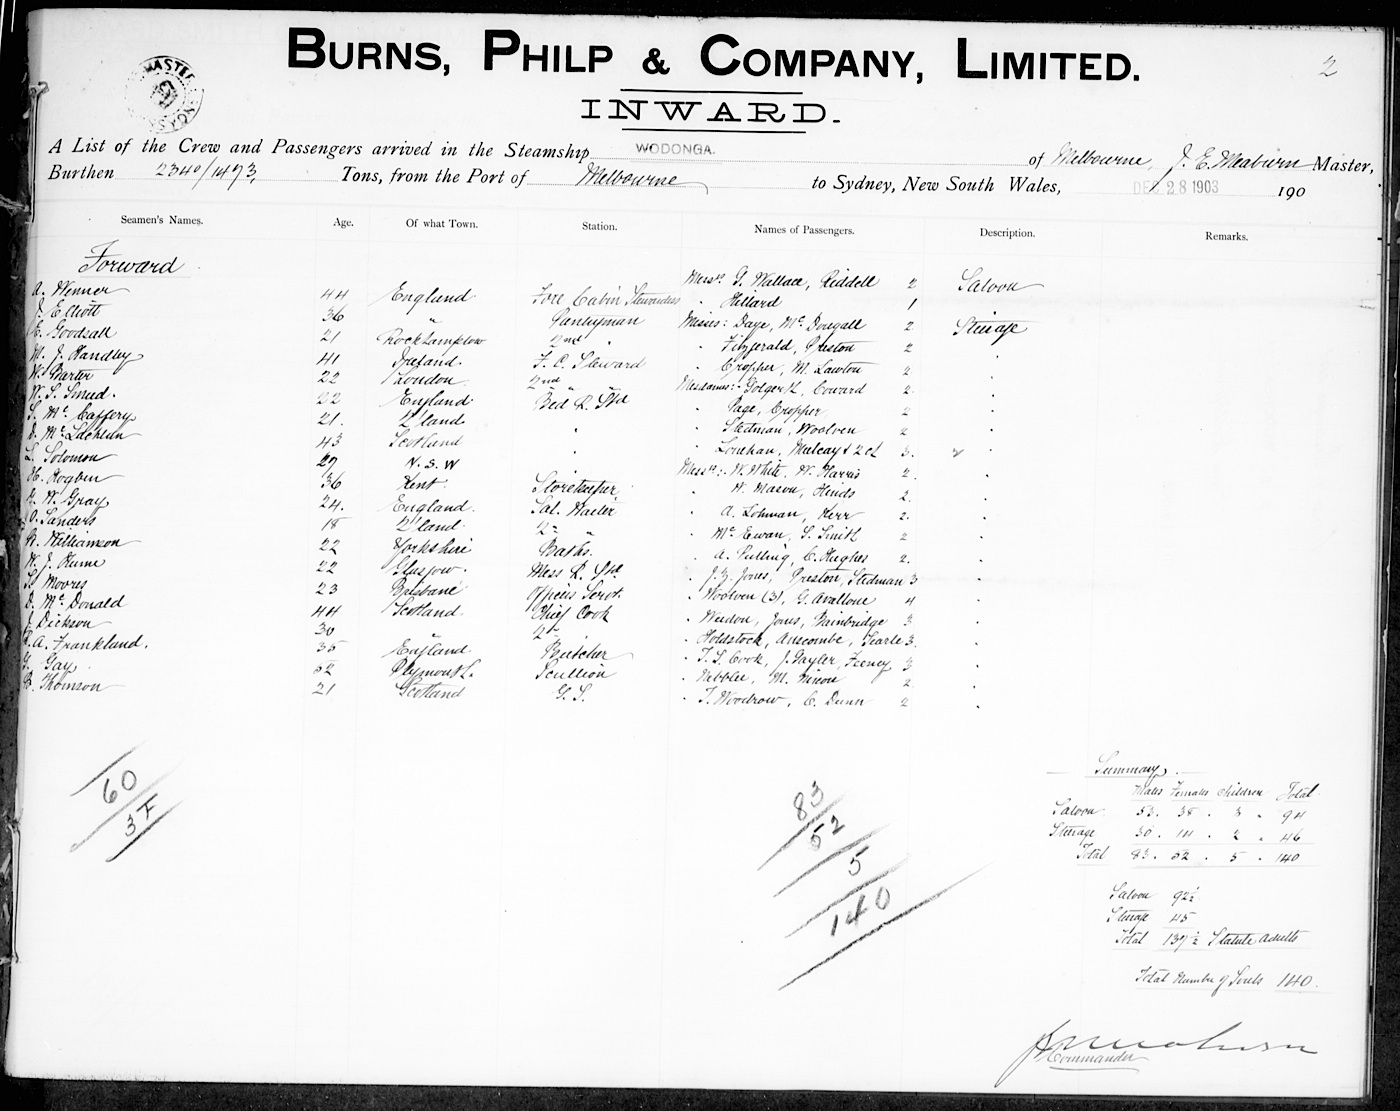 2
BURNS, PHILP & COMPANY, LIMITED.
INWARD.
A List of the Crew and Passengers arrived in the Steamship WODONGA. of Melbourne, J. E. Meaburn Master,
Burthen 2340/1473, Tons, from the Port of Melbourne to Sydney, New South Wales, DEC 28 1903 190
Seamen's Names. Age. Of what Town. Station. Names of Passengers. Description. Remarks.
Forward
Messrs G. Wallace, Riddell 2 Saloon
A. Wenner 44 England Fore Cabin Stewardess " Hillard 1
J. Elliott 36 " Pantryman Misses: Daye, McDougall 2 Steerage
E. Goodsall 21 Rockhampton 2nd " " Fitzgerald, Preston 2 "
M. J. Handley 41 Ireland F. C. Steward " Cropper, M. Lawton 2 "
W. Barter 22 London 2nd " " Mesdames: Coward 2 "
W. S. Smed. 22 England Bed R. Std " Page, Cropper 2 "
S. McCaffery 21. Q'land " " Stedman, Woolven 2 "
D. McLachlan 43 Scotland " " Lonehan, 2 ch 3. "
L. Solomon 29 N.S.W Messrs: W. White, W. Harris 2. "
H. Hogben 36 Kent Storekeeper " W. Mason, Hinds 2. "
W. Gray 24. England Sal. Waiter " A. Lohman, Kerr 2. "
O. Sanders 18 Q'land " McEwan, S. Smith 2 "
A. Williamson 22 Yorkshire Baths. " A. Pulling, C. Hughes 2. "
W. J. Hume 22 Glasgow. Mess R. Std " Jones, Preston, Stedman 3 "
S. Moores 23 Brisbane Officers Servt. " Woolven (3), G. Avallone 4 "
D. McDonald 44 Scotland Chief Cook " Weedon, Jones, Bainbridge 3 "
J. Dickson 30 " 2nd " " Holdstock, Anscombe, Searle 3. "
A. Frankland. 35 England Butcher " T. S. Cook, J. Gayler, Feeney 3 "
G. Gay 52 Plymouth. Scullion " M. Nixon 2 "
B. Thomson 21 Scotland G. S. " T. Woodrow, C. Dunn 2 "
60
37
83
52
5
140
Summary
Males Females Children Total
Saloon 53. 38. 3. 94
Steerage 30. 14. 2. 46
Total 83. 52. 5. 140
Saloon 92½
Steerage 45
Total 137½ Statute Adults
Total Number of Souls 140.
Commander